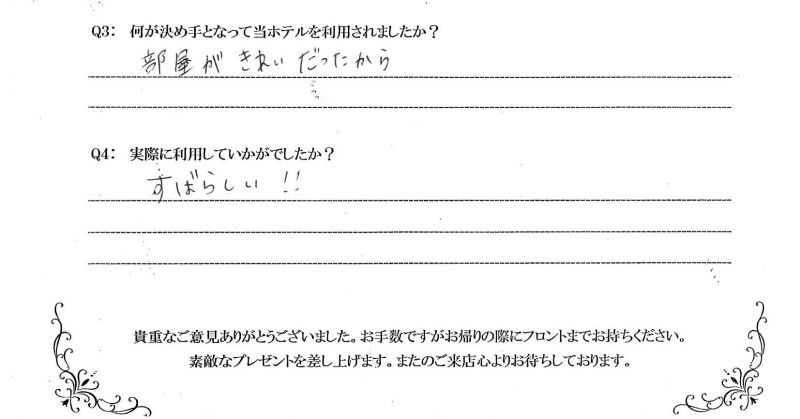 Q3: 何が決め手となって当ホテルを利用されましたか？
部屋が きれいだったから
Q4: 実際に利用していかがでしたか？
すばらしい !!
貴重なご意見ありがとうございました。お手数ですがお帰りの際にフロントまでお持ちください。
素敵なプレゼントを差し上げます。またのご来店心よりお待ちしております。